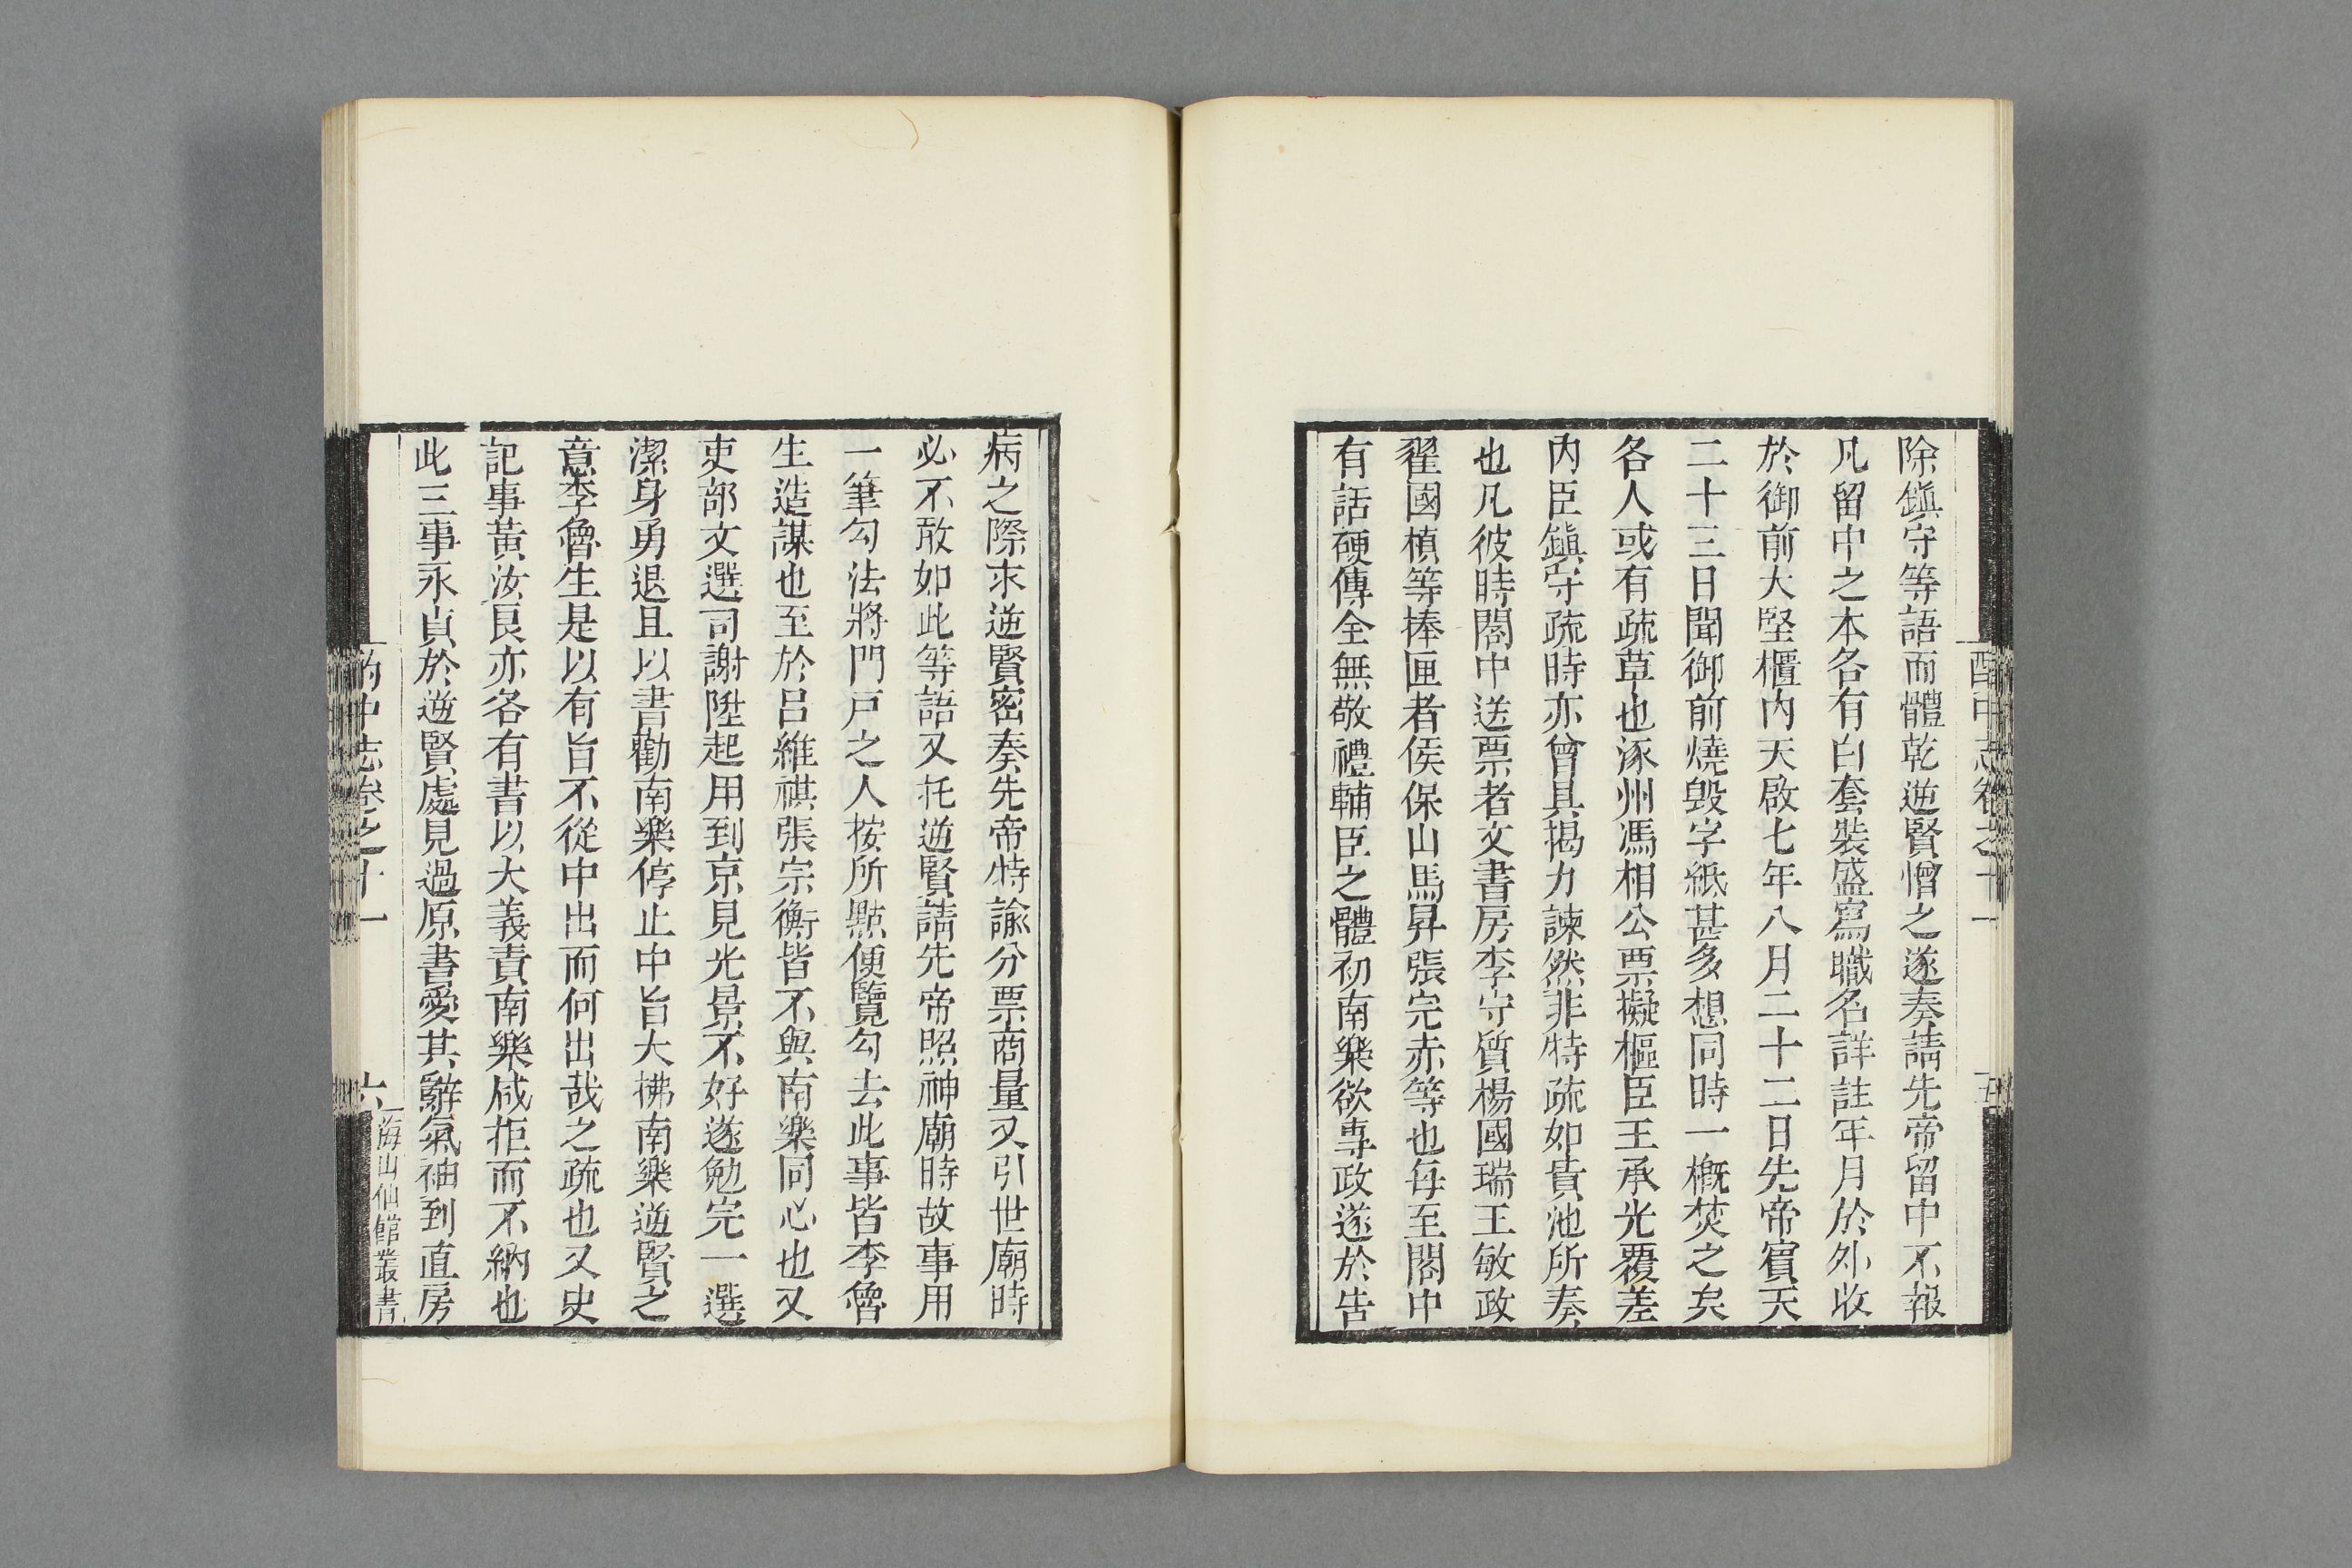 酌中志卷之十一
五
除鎭守等語而體乾逆賢憎之遂奏請先帝留中不報
凡留中之本各有白套裝盛寫職名詳註年月於外收
於御前大堅櫃內天啟七年八月二十二日先帝賓天
二十三日聞御前燒毀字紙甚多想同時一槪焚之矣
各人或有疏草也涿州馮相公票擬樞臣王承光覆差
內臣鎭守疏時亦曾具揭力諫然非特疏如貴池所奏
也凡彼時閣中送票者文書房李守質楊國瑞王敏政
翟國楨等捧匣者侯保山馬昇張完赤等也每至閣中
有話硬傳全無敬禮輔臣之體初南樂欲專政遂於告
病之際求逆賢密奏先帝特諭分票商量又引世廟時
必不敢如此等語又托逆賢請先帝照神廟時故事用
一筆勾法將門戶之人按所㸃便覽勾去此事皆李魯
生造謀也至於呂維祺張宗衡皆不與南樂同心也又
吏部文選司謝陞起用到京見光景不好遂勉完一選
潔身勇退且以書勸南樂停止中旨大拂南樂逆賢之
意李魯生是以有旨不從中出而何出哉之疏也又史
記事黃汝良亦各有書以大義責南樂咸拒而不納也
此三事永貞於逆賢處見過原書愛其辭氣袖到直房
酌中志卷之十一
六
海山仙館叢書